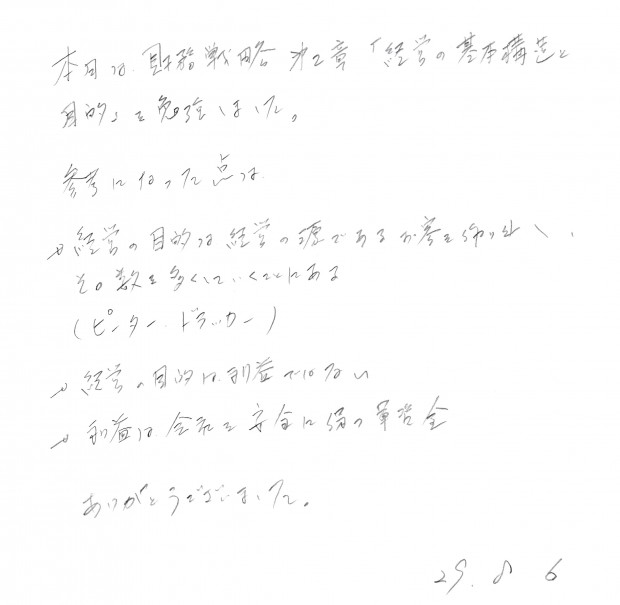 本日は 財務戦略 第2章「経営の基本構造と
目的」を勉強しました。
参考になった点は
→ 経営の目的は経営の源であるお客を作り出し、
その数を多くしていくことにある
(ピーター・ドラッカー)
→ 経営の目的は利益ではない
→ 利益は会社を安全に
ありがとうございました。
29. 8 6